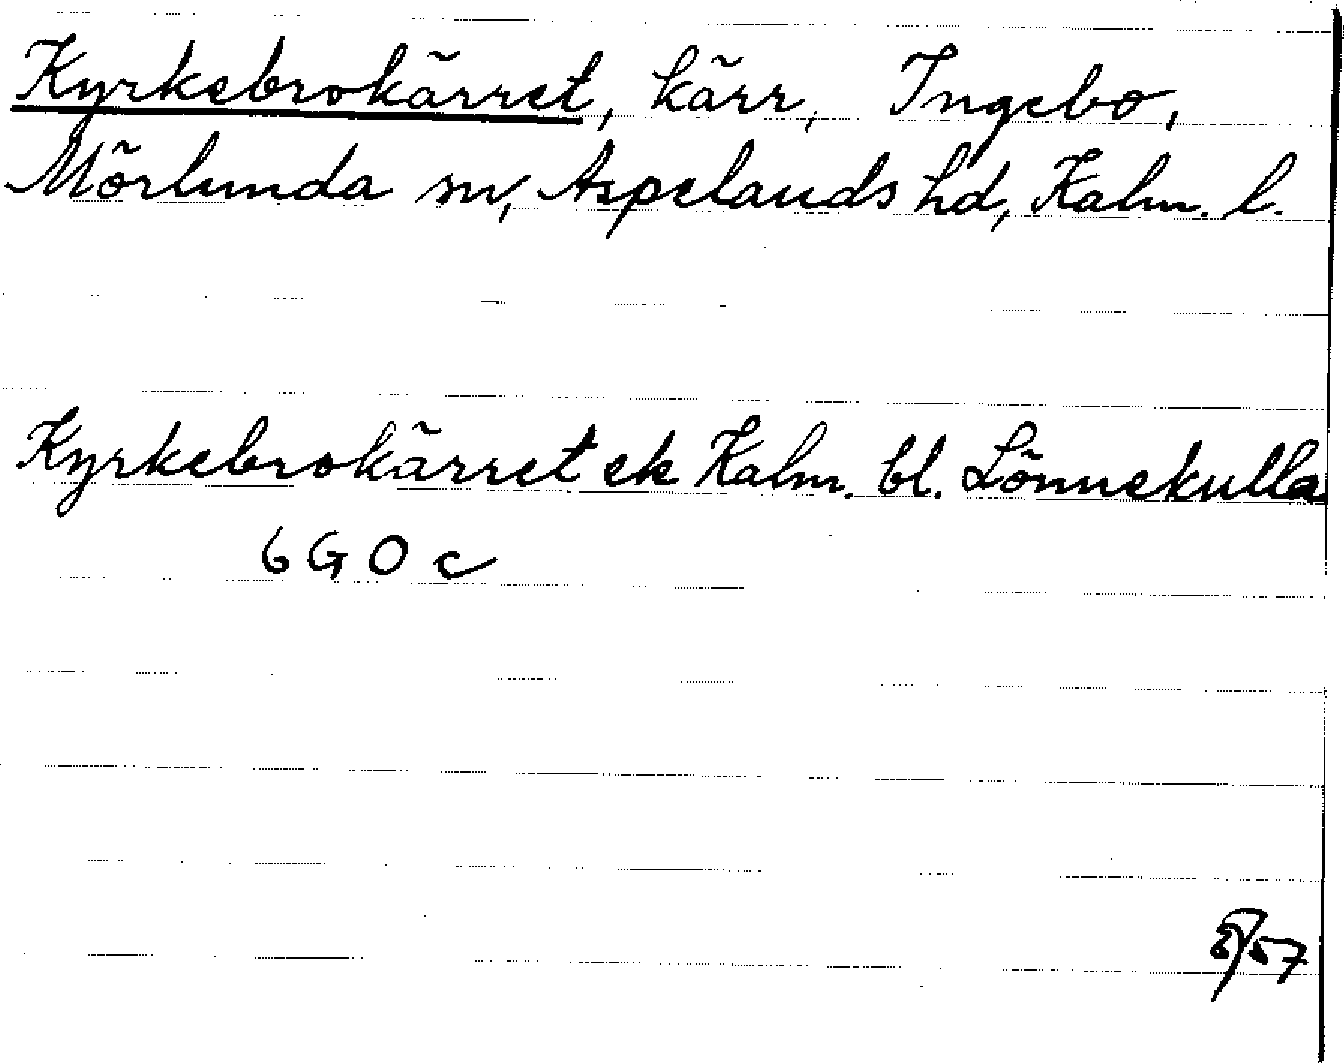 Kyrkebrokärret, kärr, Ingebo,
Mörlunda sn, Aspelands hd, Kalm. l.
Kyrkebrokärret ek Kalm. bl. Lönnekulla
6 G O c